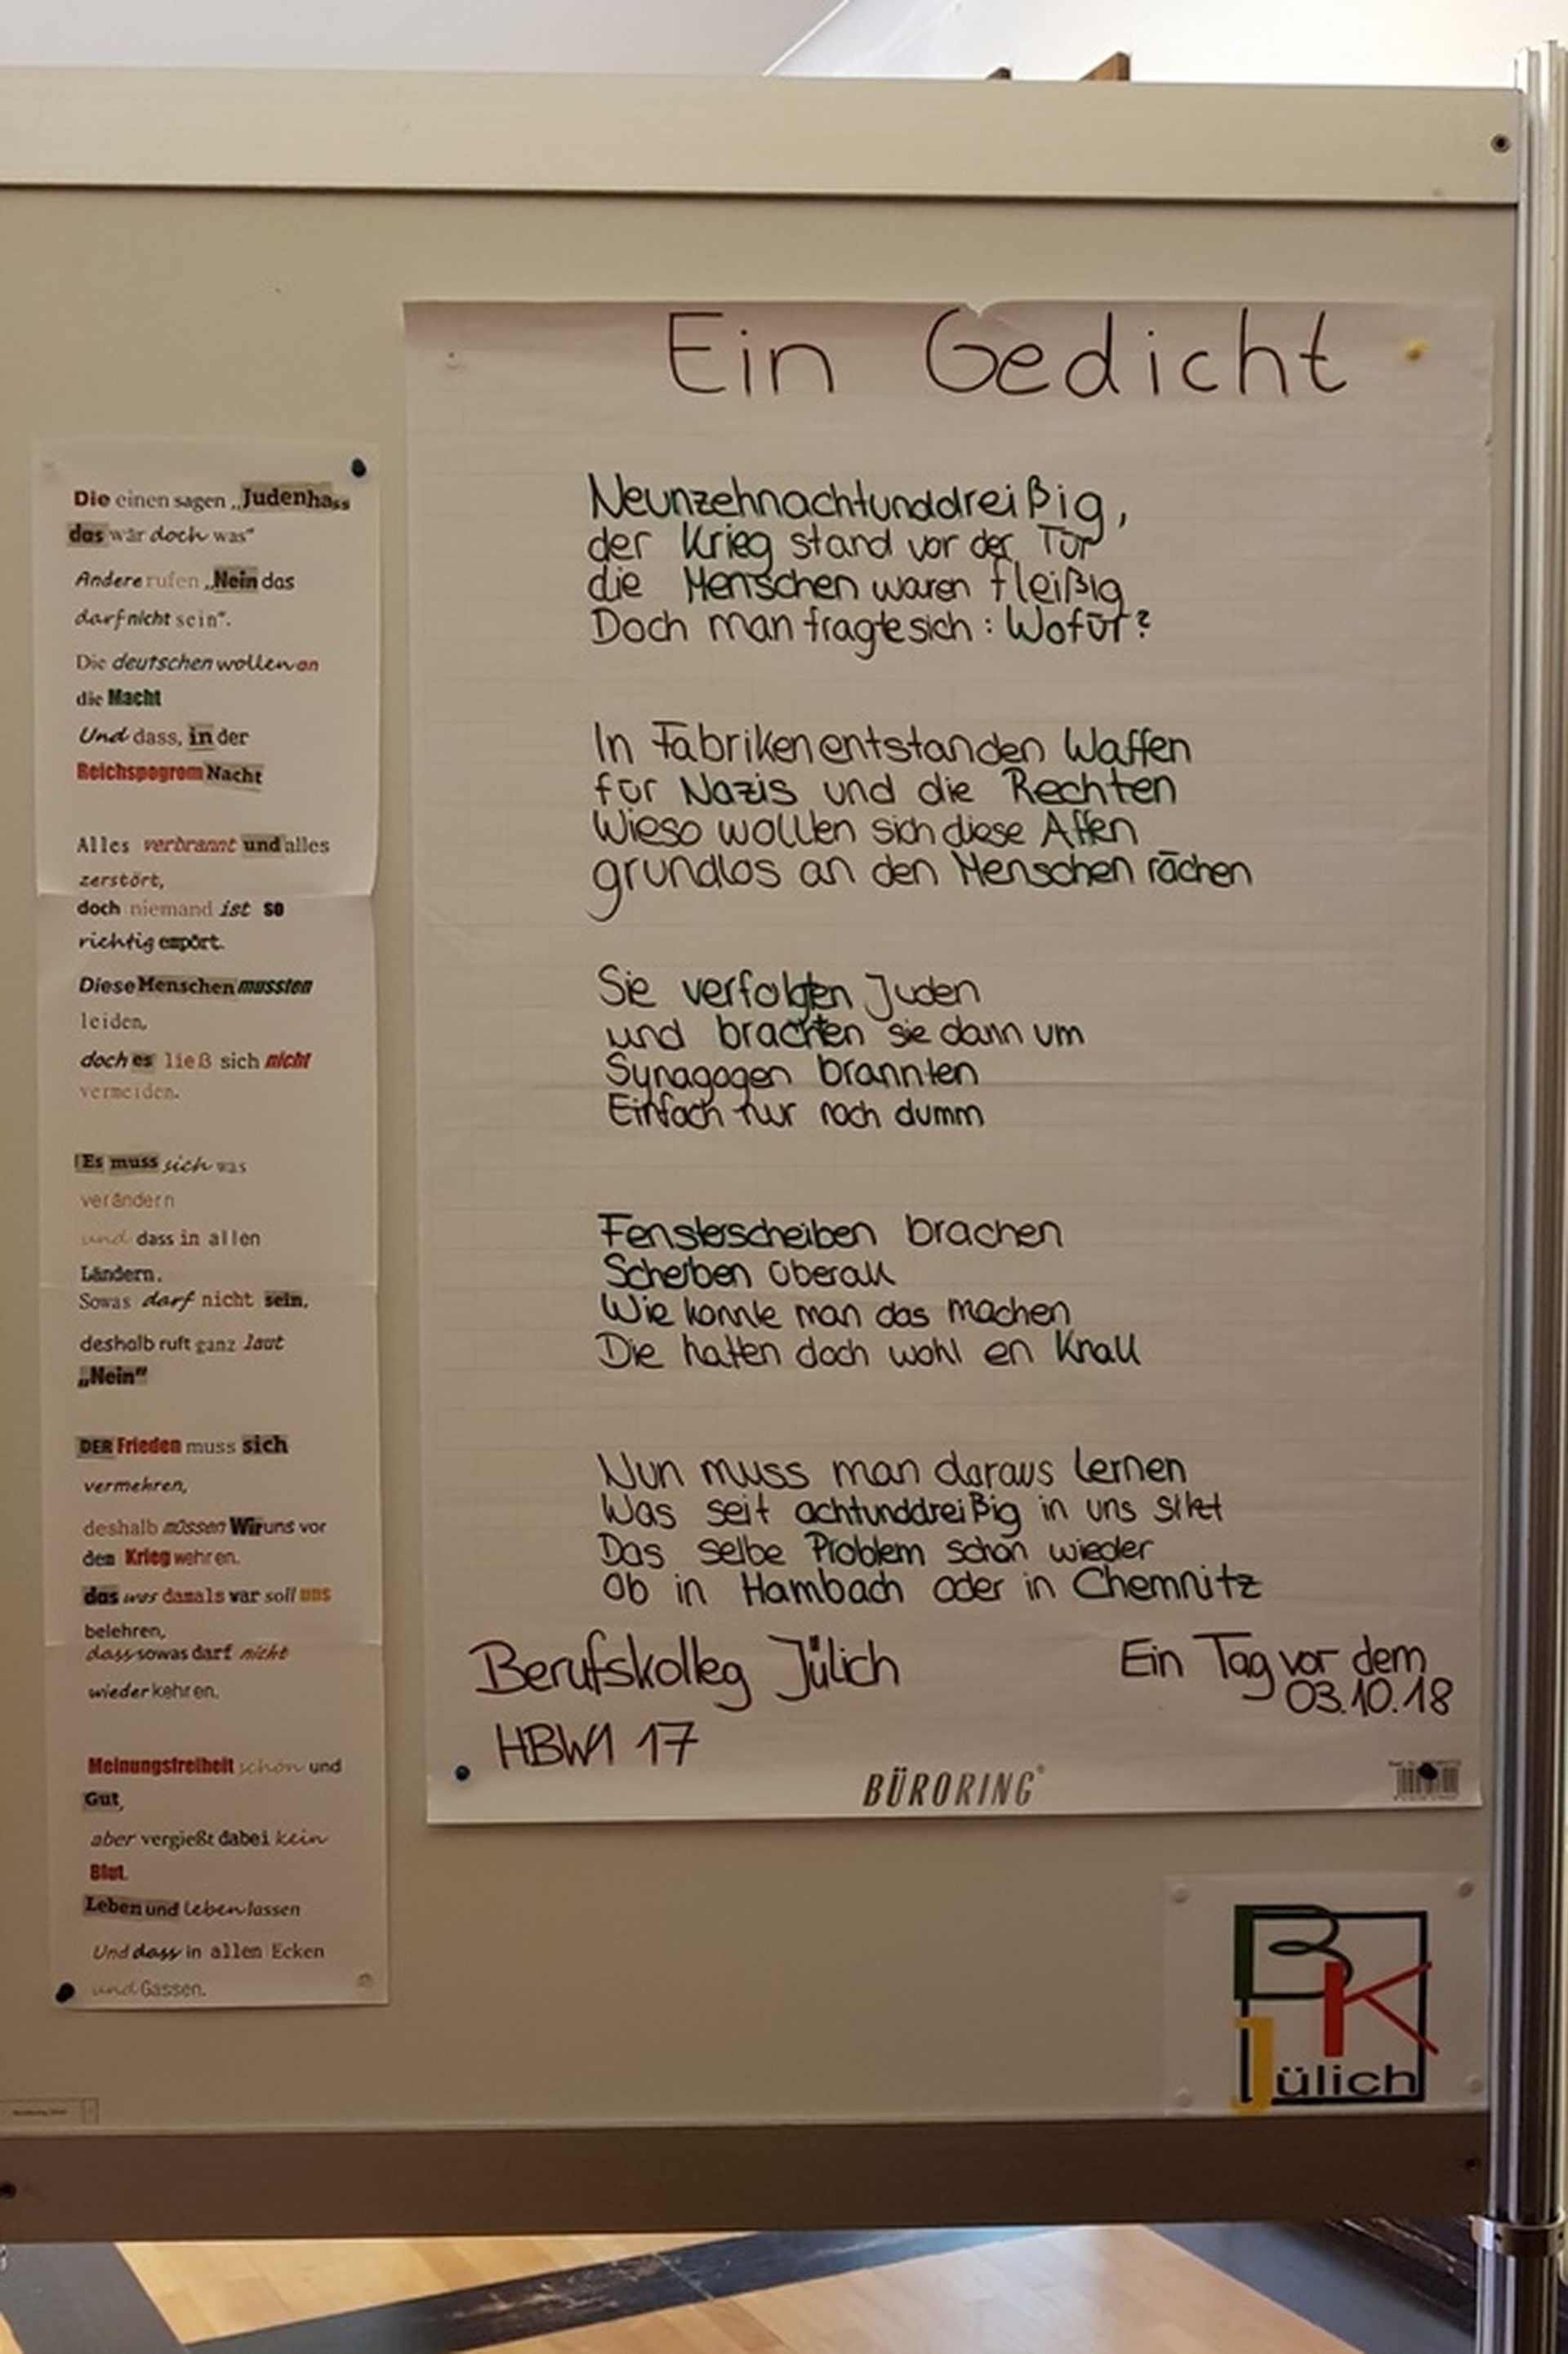 Die einen sagen „Judenhass
das wär doch was“
Andere rufen „Nein das
darf nicht sein“.
Die deutschen wollen an
die Macht
Und dass, in der
Reichspogrom Nacht
Alles verbrannt und alles
zerstört,
doch niemand ist so
richtig empört.
Diese Menschen mussten
leiden,
doch es ließ sich nicht
vermeiden.
Es muss sich was
verändern
und dass in allen
Ländern.
Sowas darf nicht sein,
deshalb ruft ganz laut
„Nein“
DER Frieden muss sich
vermehren,
deshalb müssen Wir uns vor
dem Krieg wehren.
das was damals war soll uns
belehren,
dass sowas darf nicht
wieder kehren.
Meinungsfreiheit schön und
Gut,
aber vergießt dabei kein
Blut.
Leben und leben lassen
Und dass in allen Ecken
und Gassen.
Ein Gedicht
Neunzehnachtunddreißig,
der Krieg stand vor der Tür
die Menschen waren fleißig
Doch man fragte sich: Wofür?
In Fabriken entstanden Waffen
für Nazis und die Rechten
Wieso wollten sich diese Affen
grundlos an den Menschen rächen
Sie verfolgten Juden
und brachten sie dann um
Synagogen brannten
Einfach nur noch dumm
Fensterscheiben brachen
Scherben überall
Wie konnte man das machen
Die hatten doch wohl en Knall
Nun muss man daraus lernen
Was seit achtunddreißig in uns sitzt
Das selbe Problem schon wieder
Ob in Hambach oder in Chemnitz
Berufskolleg Jülich
Ein Tag vor dem
03.10.18
HBW1 17
BÜRORING®
BK
Jülich